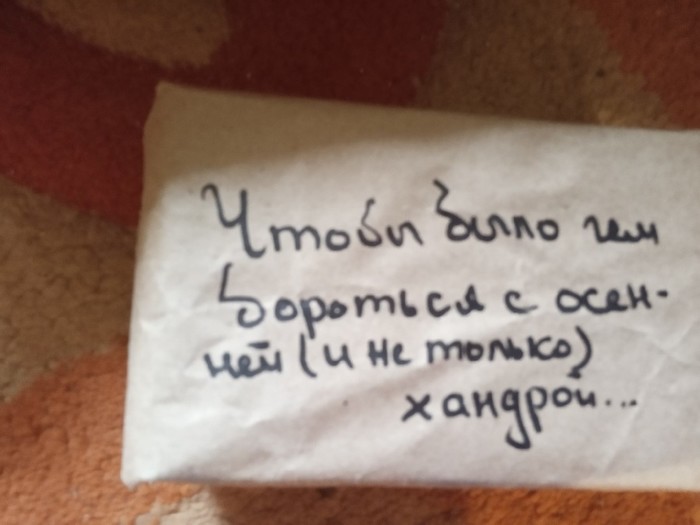 Чтобы было чем
бороться с осен-
ней (и не только)
хандрой...